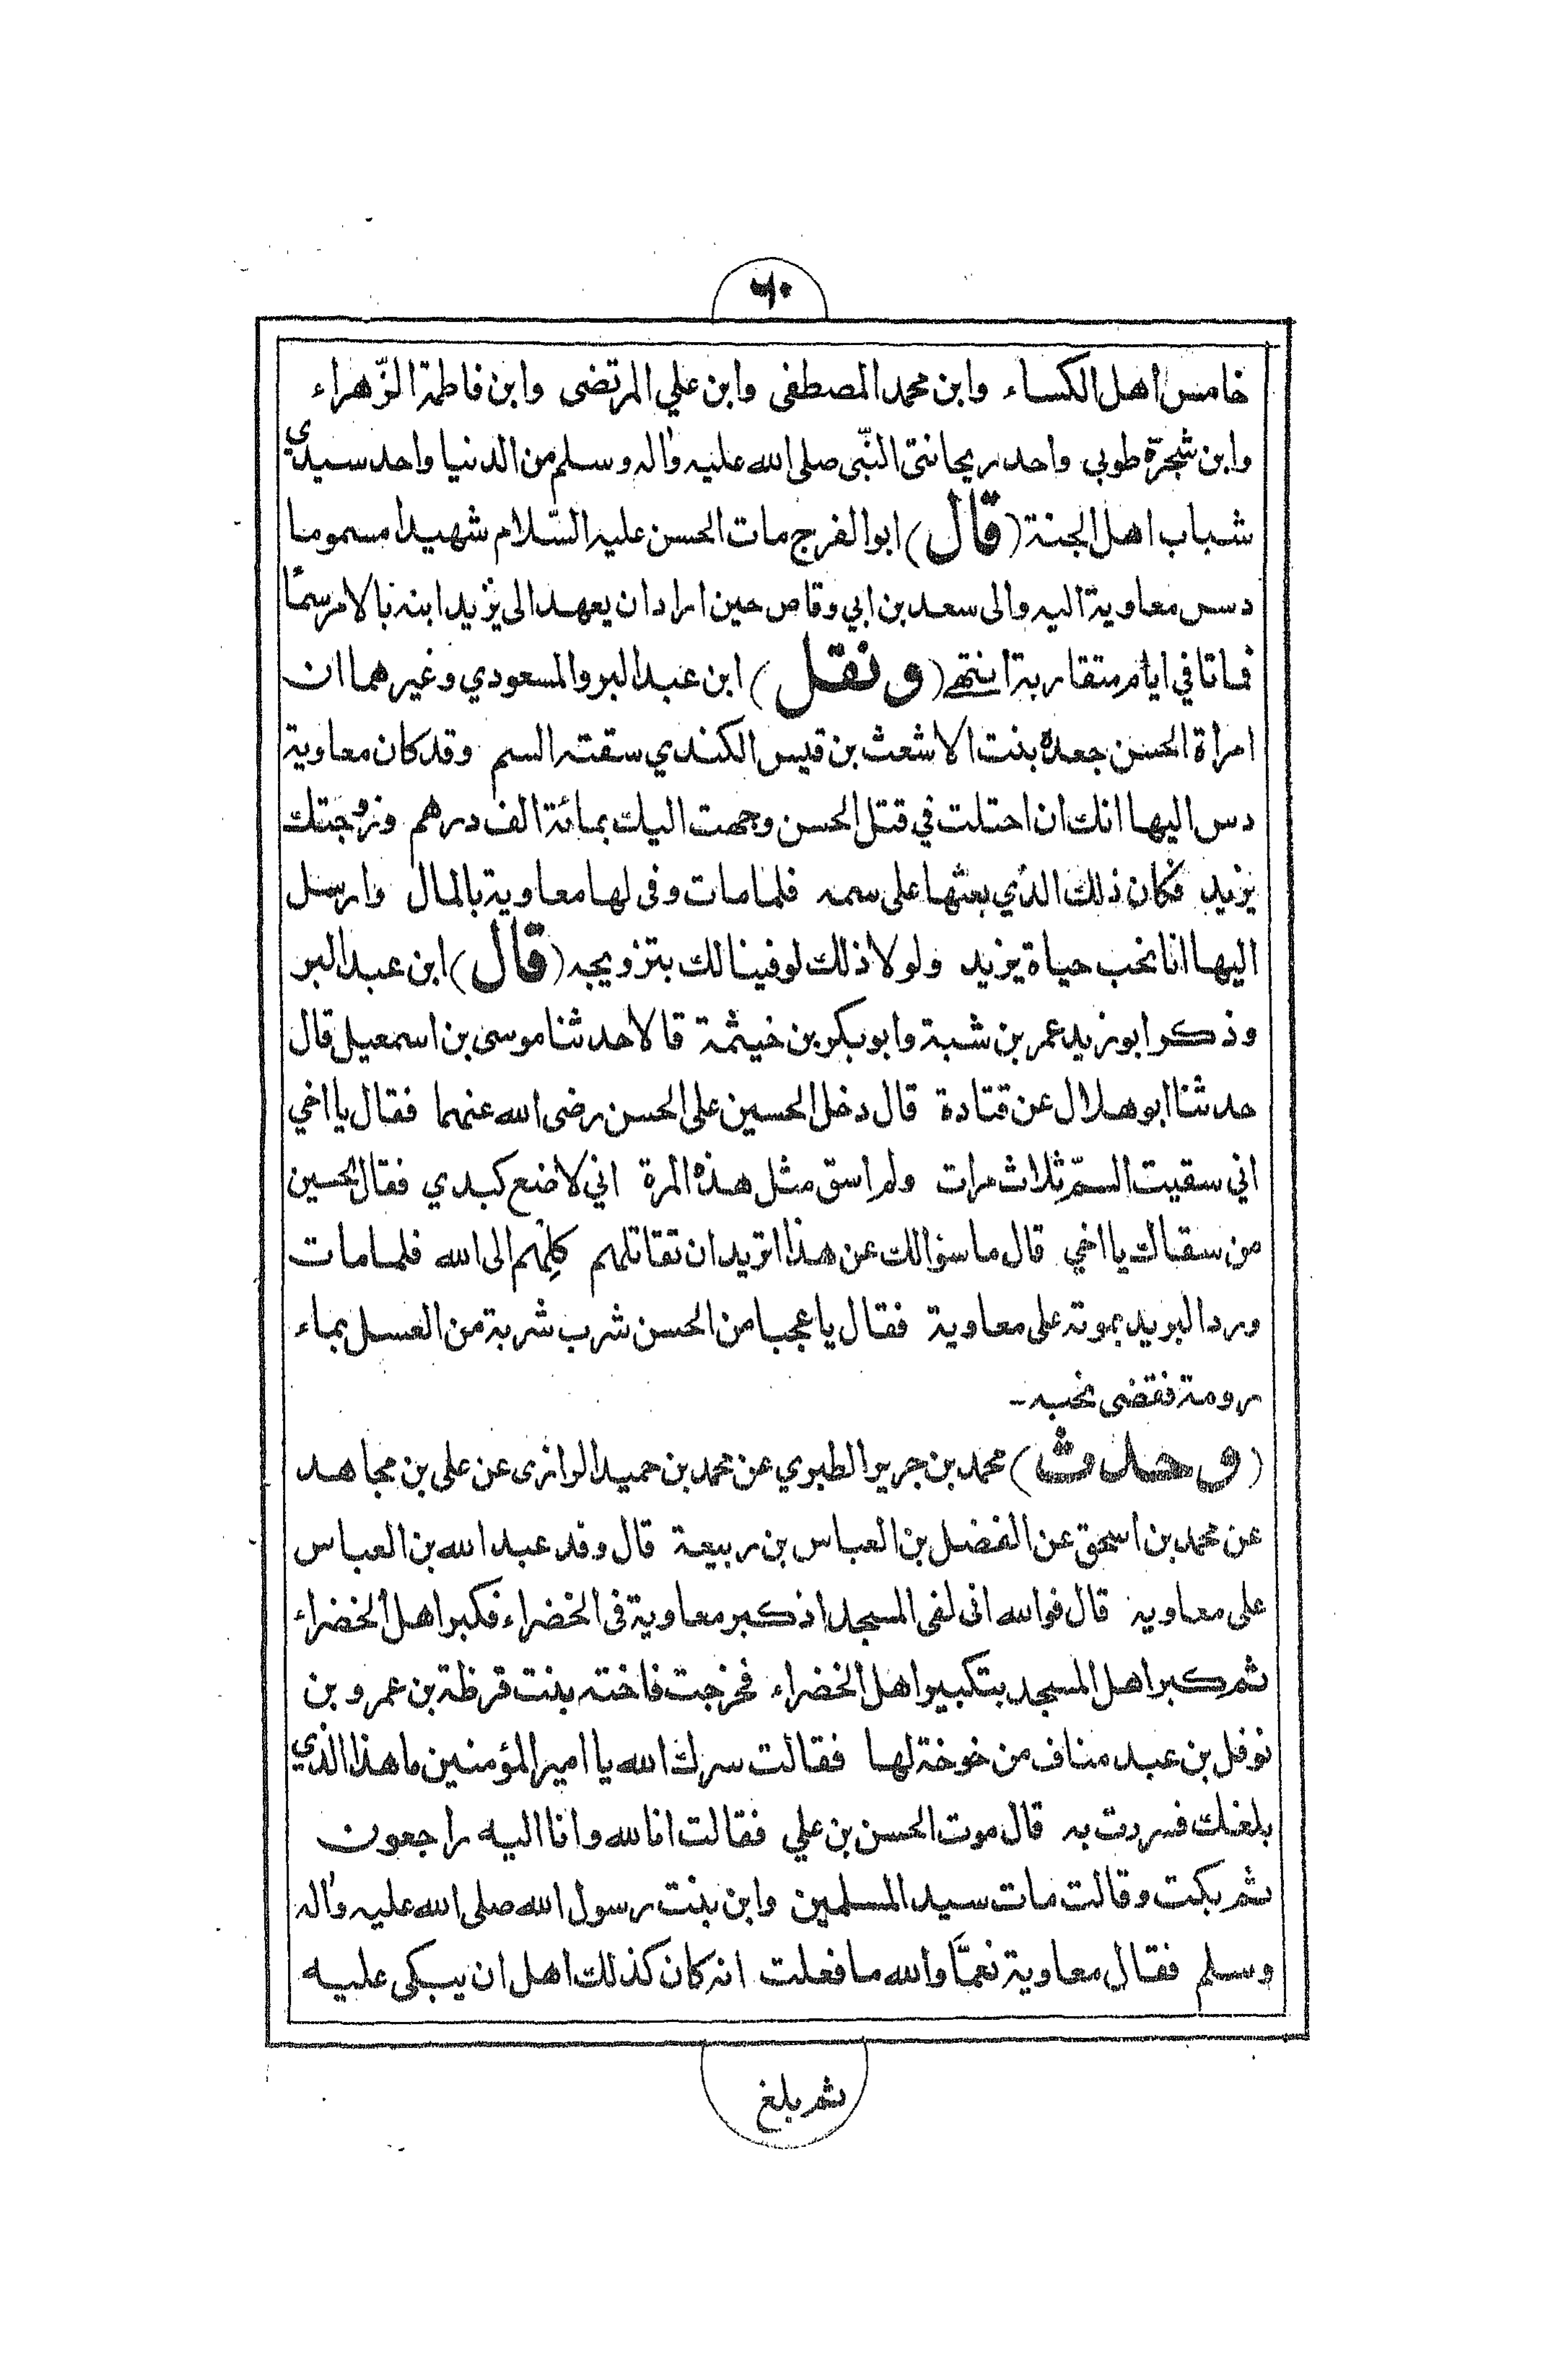 ٦٠
خامس اهل الكساء وابن محمد المصطفى وابن علي المرتضى وابن فاطمة الزّهراء
وابن شجرة طوبى واحد ريحانتى النّبى صلى الله عليه واٰله وسلم من الدنيا واحد سيدي
شباب اهل الجنة (قال) ابو الفرج مات الحسن عليه السّلام شهيدا مسموما
دس معاوية اليه والى سعد بن ابي وقاص حين اراد ان يعهد الى يزيد ابنه بالامر سمًّا
فماتا في ايام متقاربة انتهى (ونقل) ابن عبد البر والمسعودي وغيرهما ان
امراة الحسن جعدة بنت الاشعث بن قيس الكندي سقته السم وقد كان معاوية
دس اليها انك ان احتلت في قتل الحسن وجهت اليك بمائة الف درهم وزوجتك
يزيد فكان ذلك الذي بعثها على سمه فلما مات وفى لها معاوية بالمال وارسل
اليها انا نحب حياة يزيد ولولا ذلك لوفينا لك بتزويجه (قال) ابن عبد البر
وذكر ابو زيد عمر بن شبة وابو بكر بن خيثمة قالا حدثنا موسى بن اسمعيل قال
حدثنا ابو هلال عن قتادة قال دخل الحسين على الحسن رضى الله عنهما فقال يا اخي
اني سقيت السمّ ثلاث مرات ولم اسق مثل هذه المرة اني لاضع كبدي فقال الحسين
من سقاك يا اخي قال ما سؤالك عن هذا اتريد ان تقاتلهم كِلْهُم الى الله فلما مات
ورد البريد بموته على معاوية فقال يا عجبا من الحسن شرب شربة من العسل بماء
رومة فقضى نحبه -
(وحدث) محمد بن جرير الطبري عن محمد بن حميد الرازى عن على بن مجاهد
عن محمد بن اسحق عن الفضل بن العباس بن ربيعة قال وفد عبد الله بن العباس
على معاويه قال فوالله انى لفى المسجد اذ كبر معاوية فى الخضراء فكبر اهل الخضراء
ثم كبر اهل المسجد بتكبير اهل الخضراء فخرجت فاخته بنت قرظة بن عمرو بن
نوفل بن عبد مناف من خوخة لها فقالت سرك الله يا امير المؤمنين ما هذا الذي
بلغك فسررت به قال موت الحسن بن علي فقالت انا لله وانا اليه راجعون
ثم بكت وقالت مات سيد المسلمين وابن بنت رسول الله صلى الله عليه واٰله
وسلم فقال معاوية نعمَّا والله ما فعلت انه كان كذلك اهل ان يبكى عليه
ثم بلغ